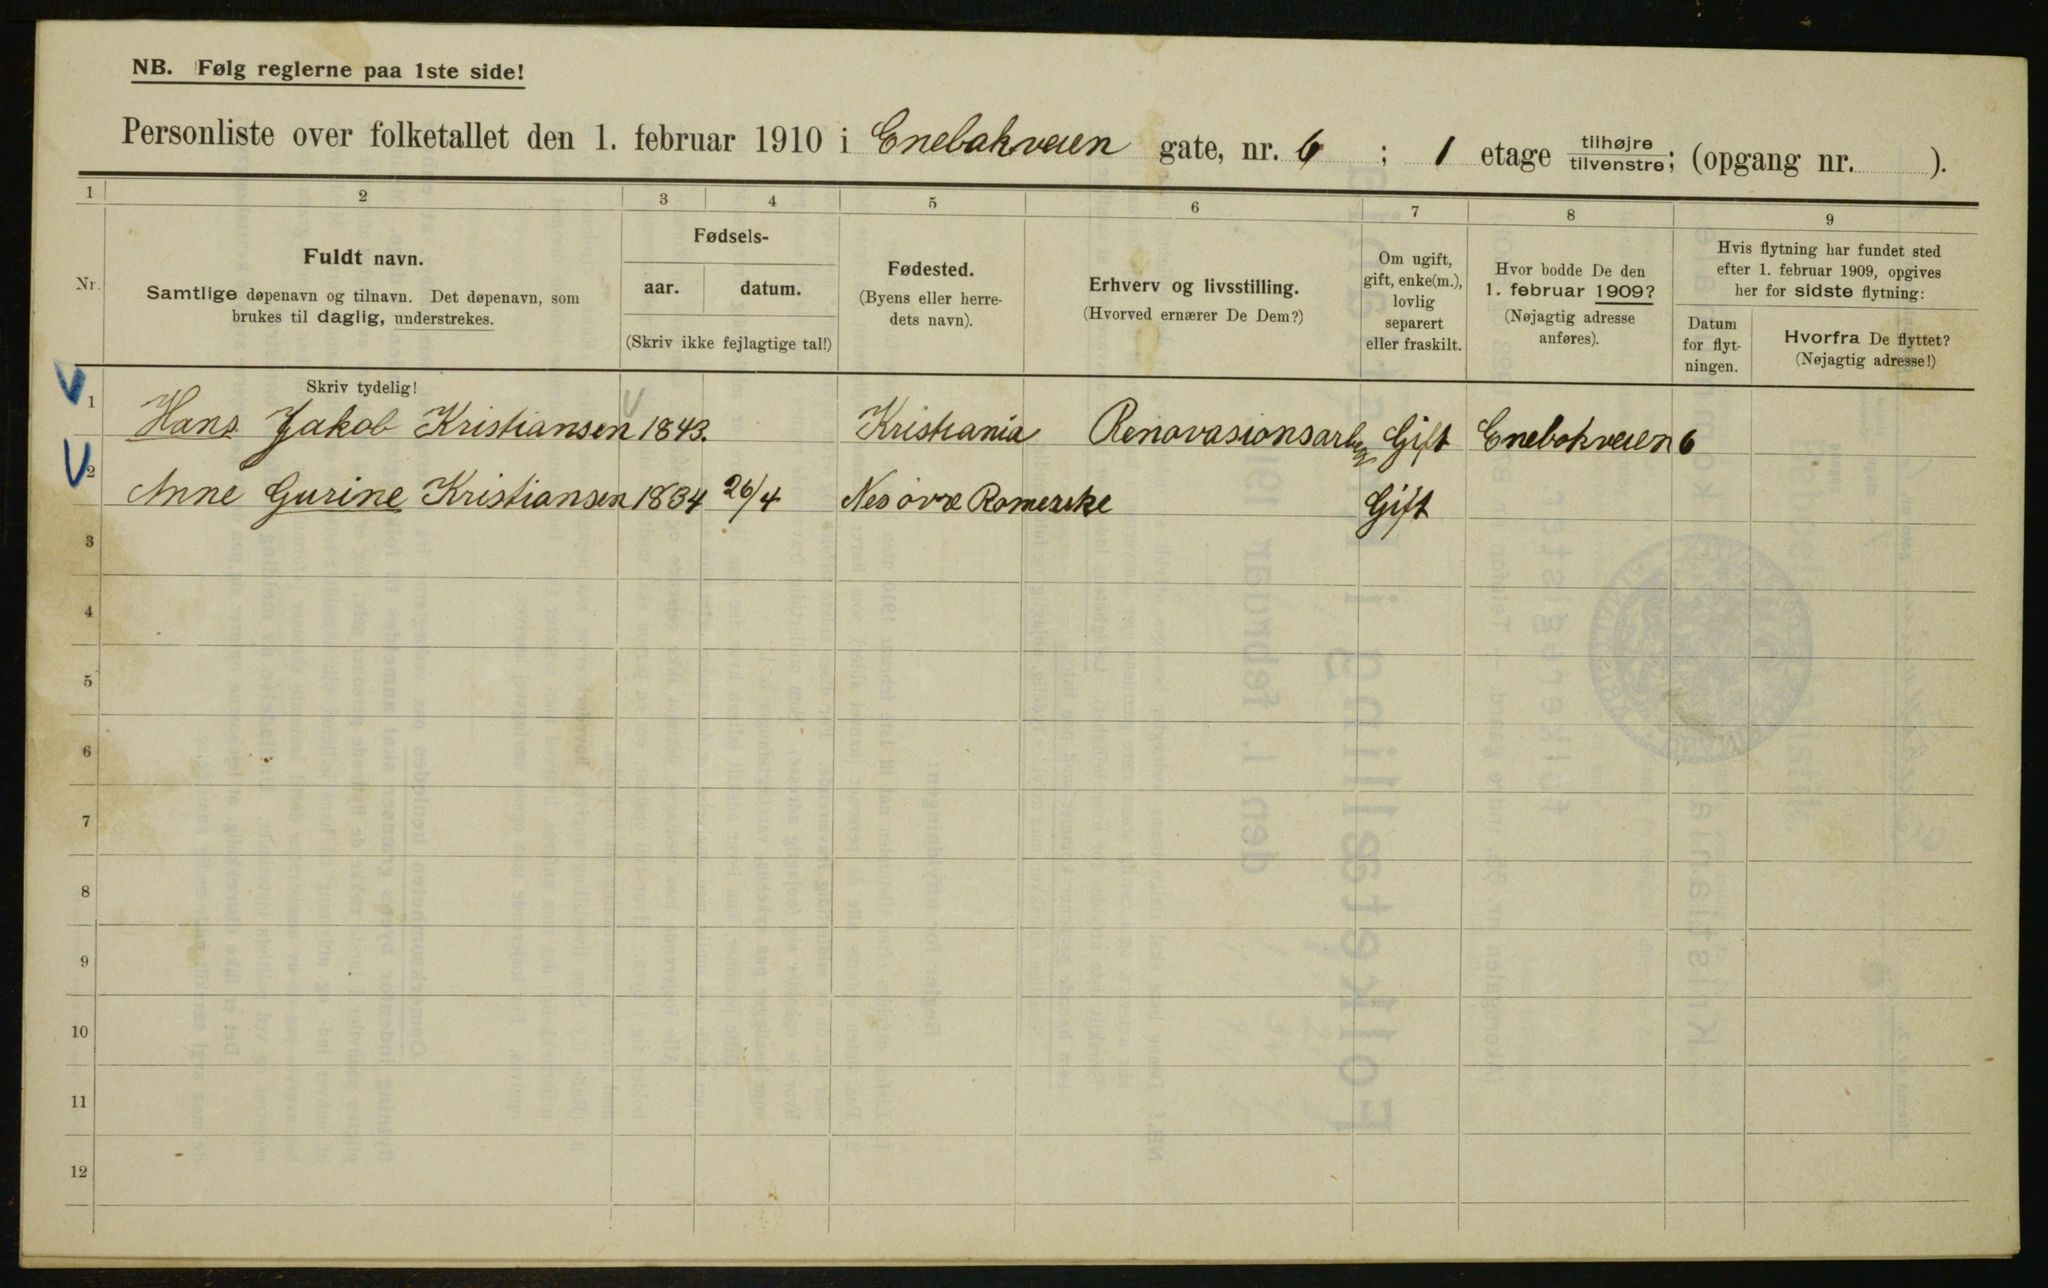 NB. Følg reglerne paa 1ste side!
Personliste over folketallet den 1. februar 1910 i Enebakveien gate, nr. 6 ; 1 etage tilhøjre/tilvenstre; (opgang nr. ).
1 2 3 4 5 6 7 8 9
Nr.
Fuldt navn.
Samtlige døpenavn og tilnavn. Det døpenavn, som
brukes til daglig, understrekes.
Skriv tydelig!
Fødsels-
aar. datum.
(Skriv ikke fejlagtige tal!)
Fødested.
(Byens eller herre-
dets navn).
Erhverv og livsstilling.
(Hvorved ernærer De Dem?)
Om ugift,
gift, enke(m.),
lovlig
separert
eller fraskilt.
Hvor bodde De den
1. februar 1909?
(Nøjagtig adresse
anføres).
Hvis flytning har fundet sted
efter 1. februar 1909, opgives
her for sidste flytning:
Datum
for flyt-
ningen.
Hvorfra De flyttet?
(Nøjagtig adresse!)
1 Hans Jakob Kristiansen 1843. Kristiania Renovasionsarb Gift Enebakveien 6
2 Anne Gurine Kristiansen 1834 26/4 Nes øvre Romerike Gift
3
4
5
6
7
8
9
10
11
12